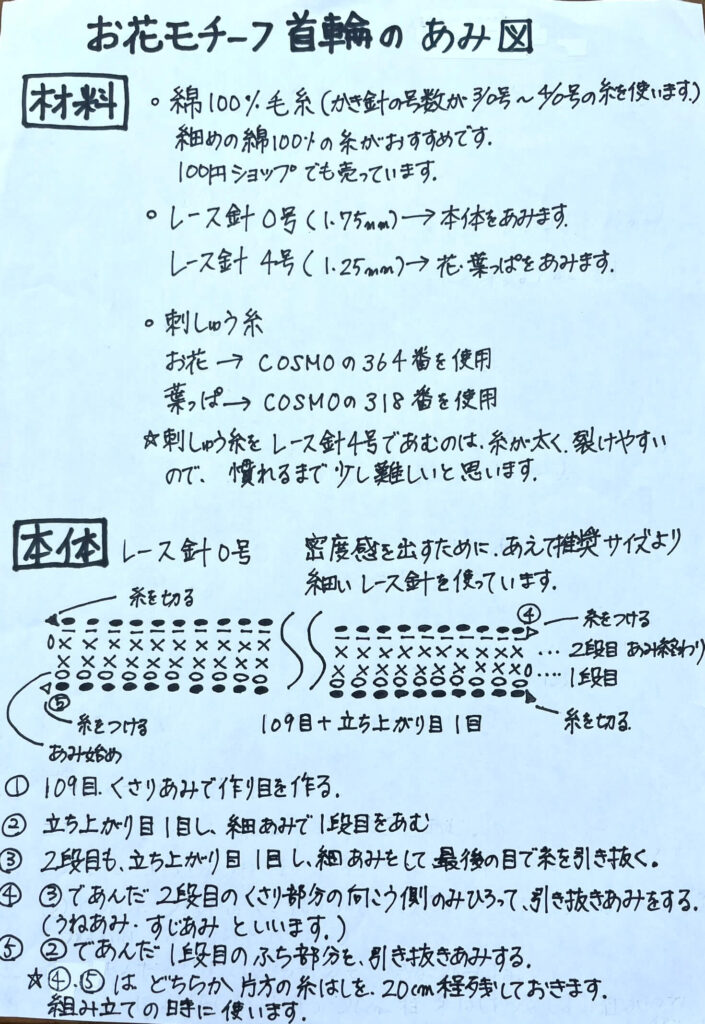 お花モチーフ首輪のあみ図
材料
○ 綿100%毛糸(かぎ針の号数が3/0号〜4/0号の糸を使います。)
細めの綿100%の糸がおすすめです。
100円ショップでも売っています。
○ レース針0号(1.75mm)→本体をあみます。
レース針4号(1.25mm)→花・葉っぱをあみます。
○ 刺しゅう糸
お花→COSMOの364番を使用
葉っぱ→COSMOの318番を使用
☆刺しゅう糸をレース針4号であむのは、糸が太く、裂けやすい
ので、慣れるまで少し難しいと思います。
本体 レース針0号
密度感を出すために、あえて推奨サイズより
細いレース針を使っています。
糸を切る
④
糸をつける
2段目 あみ終わり
1段目
⑤
糸をつける
あみ始め
109目+立ち上がり目1目
糸を切る
① 109目、くさりあみで作り目を作る。
② 立ち上がり目1目し、細あみで1段目をあむ
③ 2段目も、立ち上がり目1目し、細あみをして最後の目で糸を引き抜く。
④ ③であんだ2段目のくさり部分の向こう側のみひろって、引き抜きあみをする。
(うねあみ・すじあみといいます。)
⑤ ②であんだ1段目のふち部分を、引き抜きあみする。
☆④、⑤はどちらか片方の糸はしを、20cm程残しておきます。
組み立ての時に使います。